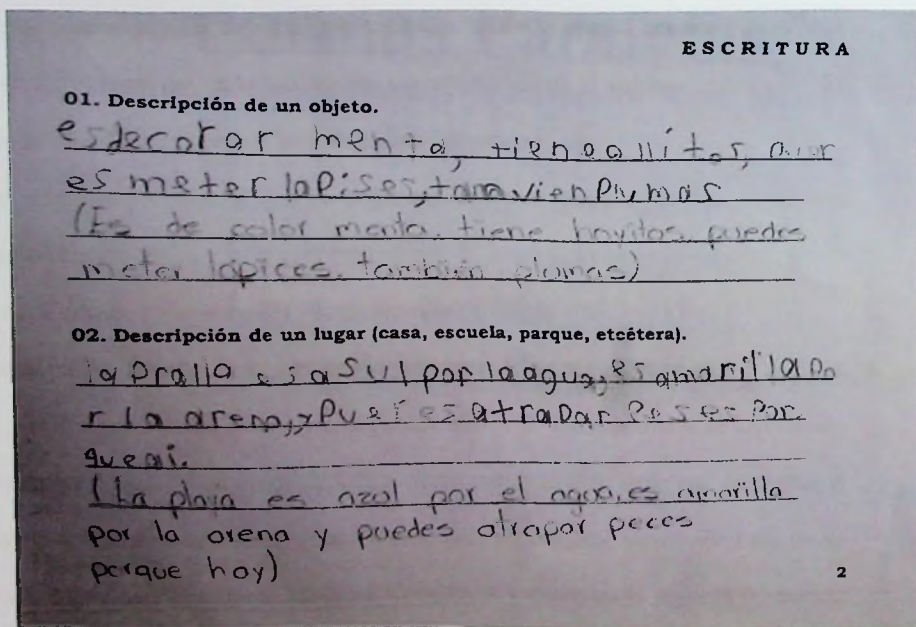 ESCRITURA
01. Descripción de un objeto.
esdecolor menta, tieneollitos,
es meter lapises, tanvien Plumas
(Es de color menta. tiene hoyitos, puedes
meter lápices. también plumas)
02. Descripción de un lugar (casa, escuela, parque, etcétera).
la Pralla esasul por laagua, esamarilla Po
r la arena, y Puedes atrapar Peses Por
que ai.
(La playa es azul por el agua, es amarilla
por la arena y puedes atrapar peces
porque hay)
2